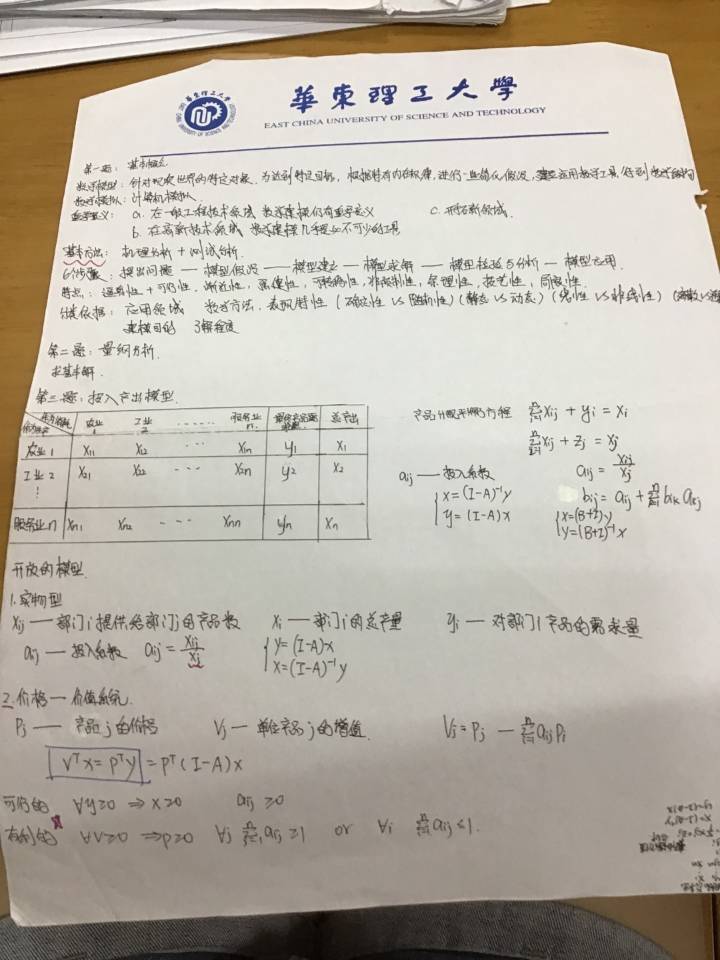 華東理工大學
EAST CHINA UNIVERSITY OF SCIENCE AND TECHNOLOGY
第一题：基本概念
数学模型：针对现实世界的特定对象，为达到特定目的，根据特有内在规律，进行一些简化假设，建立运用数学工具，得到数学结构
数学模拟：计算机模拟
重要意义：a. 在一般工程技术领域 数学建模仍有重要意义 c. 开拓新领域.
b. 在高新技术领域 数学建模几乎是必不可少的工具
基本方法：机理分析 + 测试分析.
6个步骤：提出问题 — 模型假设 — 模型建立 — 模型求解 — 模型检验与分析 — 模型应用.
特点：逼真性 + 可行性，渐进性，强健性，可转移性，非预制性，条理性，技艺性，局限性.
分类依据：应用领域 数学方法，表现特性 (确定性 VS 随机性) (静态 VS 动态) (线性 VS 非线性) (离散 VS
建模目的 了解程度
第二题：量纲分析.
求基本解.
第三题：投入产出模型.
农业 1 工业 2 ...... 服务业 n 总产出
农业 1 x11 x12 --- x1n y1 x1
工业 2 x21 x22 --- x2n y2 x2
⋮
服务业 n xn1 xn2 --- xnn yn xn
产品分配平衡方程 Σxij + yi = xi
Σxij + zj = xj
aij — 投入系数 aij = xij/xj
{x = (I-A)⁻¹y bij = aij + Σbik akj
{y = (I-A)x {x = (B+I)y
{y = (B+I)⁻¹x
开放的模型.
1. 实物型
xij — 部门i提供给部门j的产品数 xi — 部门i的总产量 yi — 对部门i产品的需求量
aij — 投入系数 aij = xij/xj {y = (I-A)x
{x = (I-A)⁻¹y
2. 价格 — 价值系统.
Pj — 产品j的价格 Vj — 单位产品j的增值. Vj = Pj — Σaij Pi
VᵀX = PᵀY = Pᵀ(I-A)X
可行的 ∀y≥0 ⇒ x≥0 aij ≥0
有利的 ∀V≥0 ⇒ P≥0 ∀j Σaij ≥1 or ∀i Σaij <1.